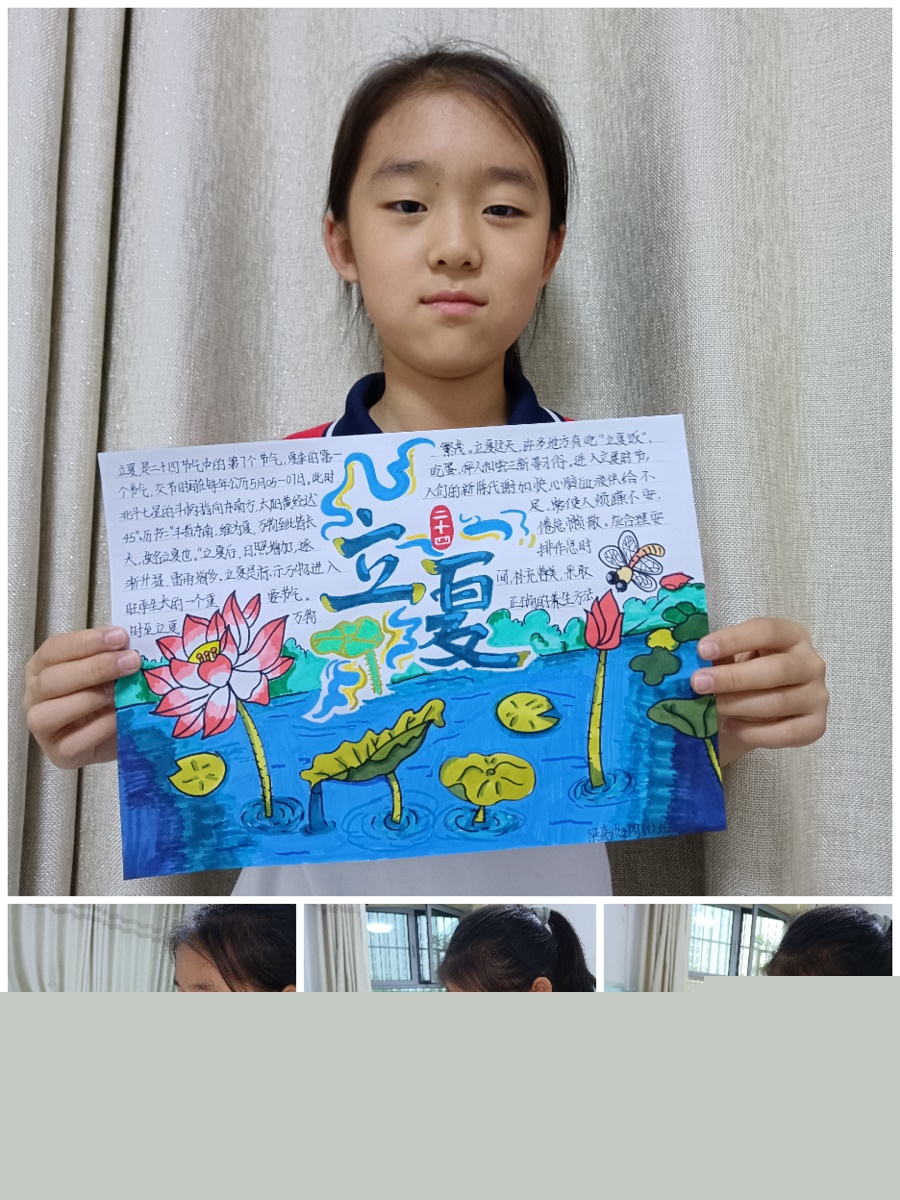 立夏是二十四节气中的第7个节气,夏季的第一
个节气,交节时间在每年公历5月05-07日。此时
北斗七星的斗柄指向东南方,太阳黄经达
45°。历书:"斗指东南,维为夏,万物至此皆长
大,故名立夏也。"立夏后,日照增加,逐
渐升温,雷雨增多。立夏是标示万物进入
旺季生长的一个重要节气。
时至立夏 万物
繁茂。立夏这天,许多地方有吃"立夏饭"、
吃蛋、秤人和尝三新等习俗。进入立夏时节,
人们的新陈代谢加快心脑血液供给不
足,常使人烦躁不安,
倦怠懒散。应合理安
排作息时
间,补充营养,采取
正确的养生方法
二十四
立夏